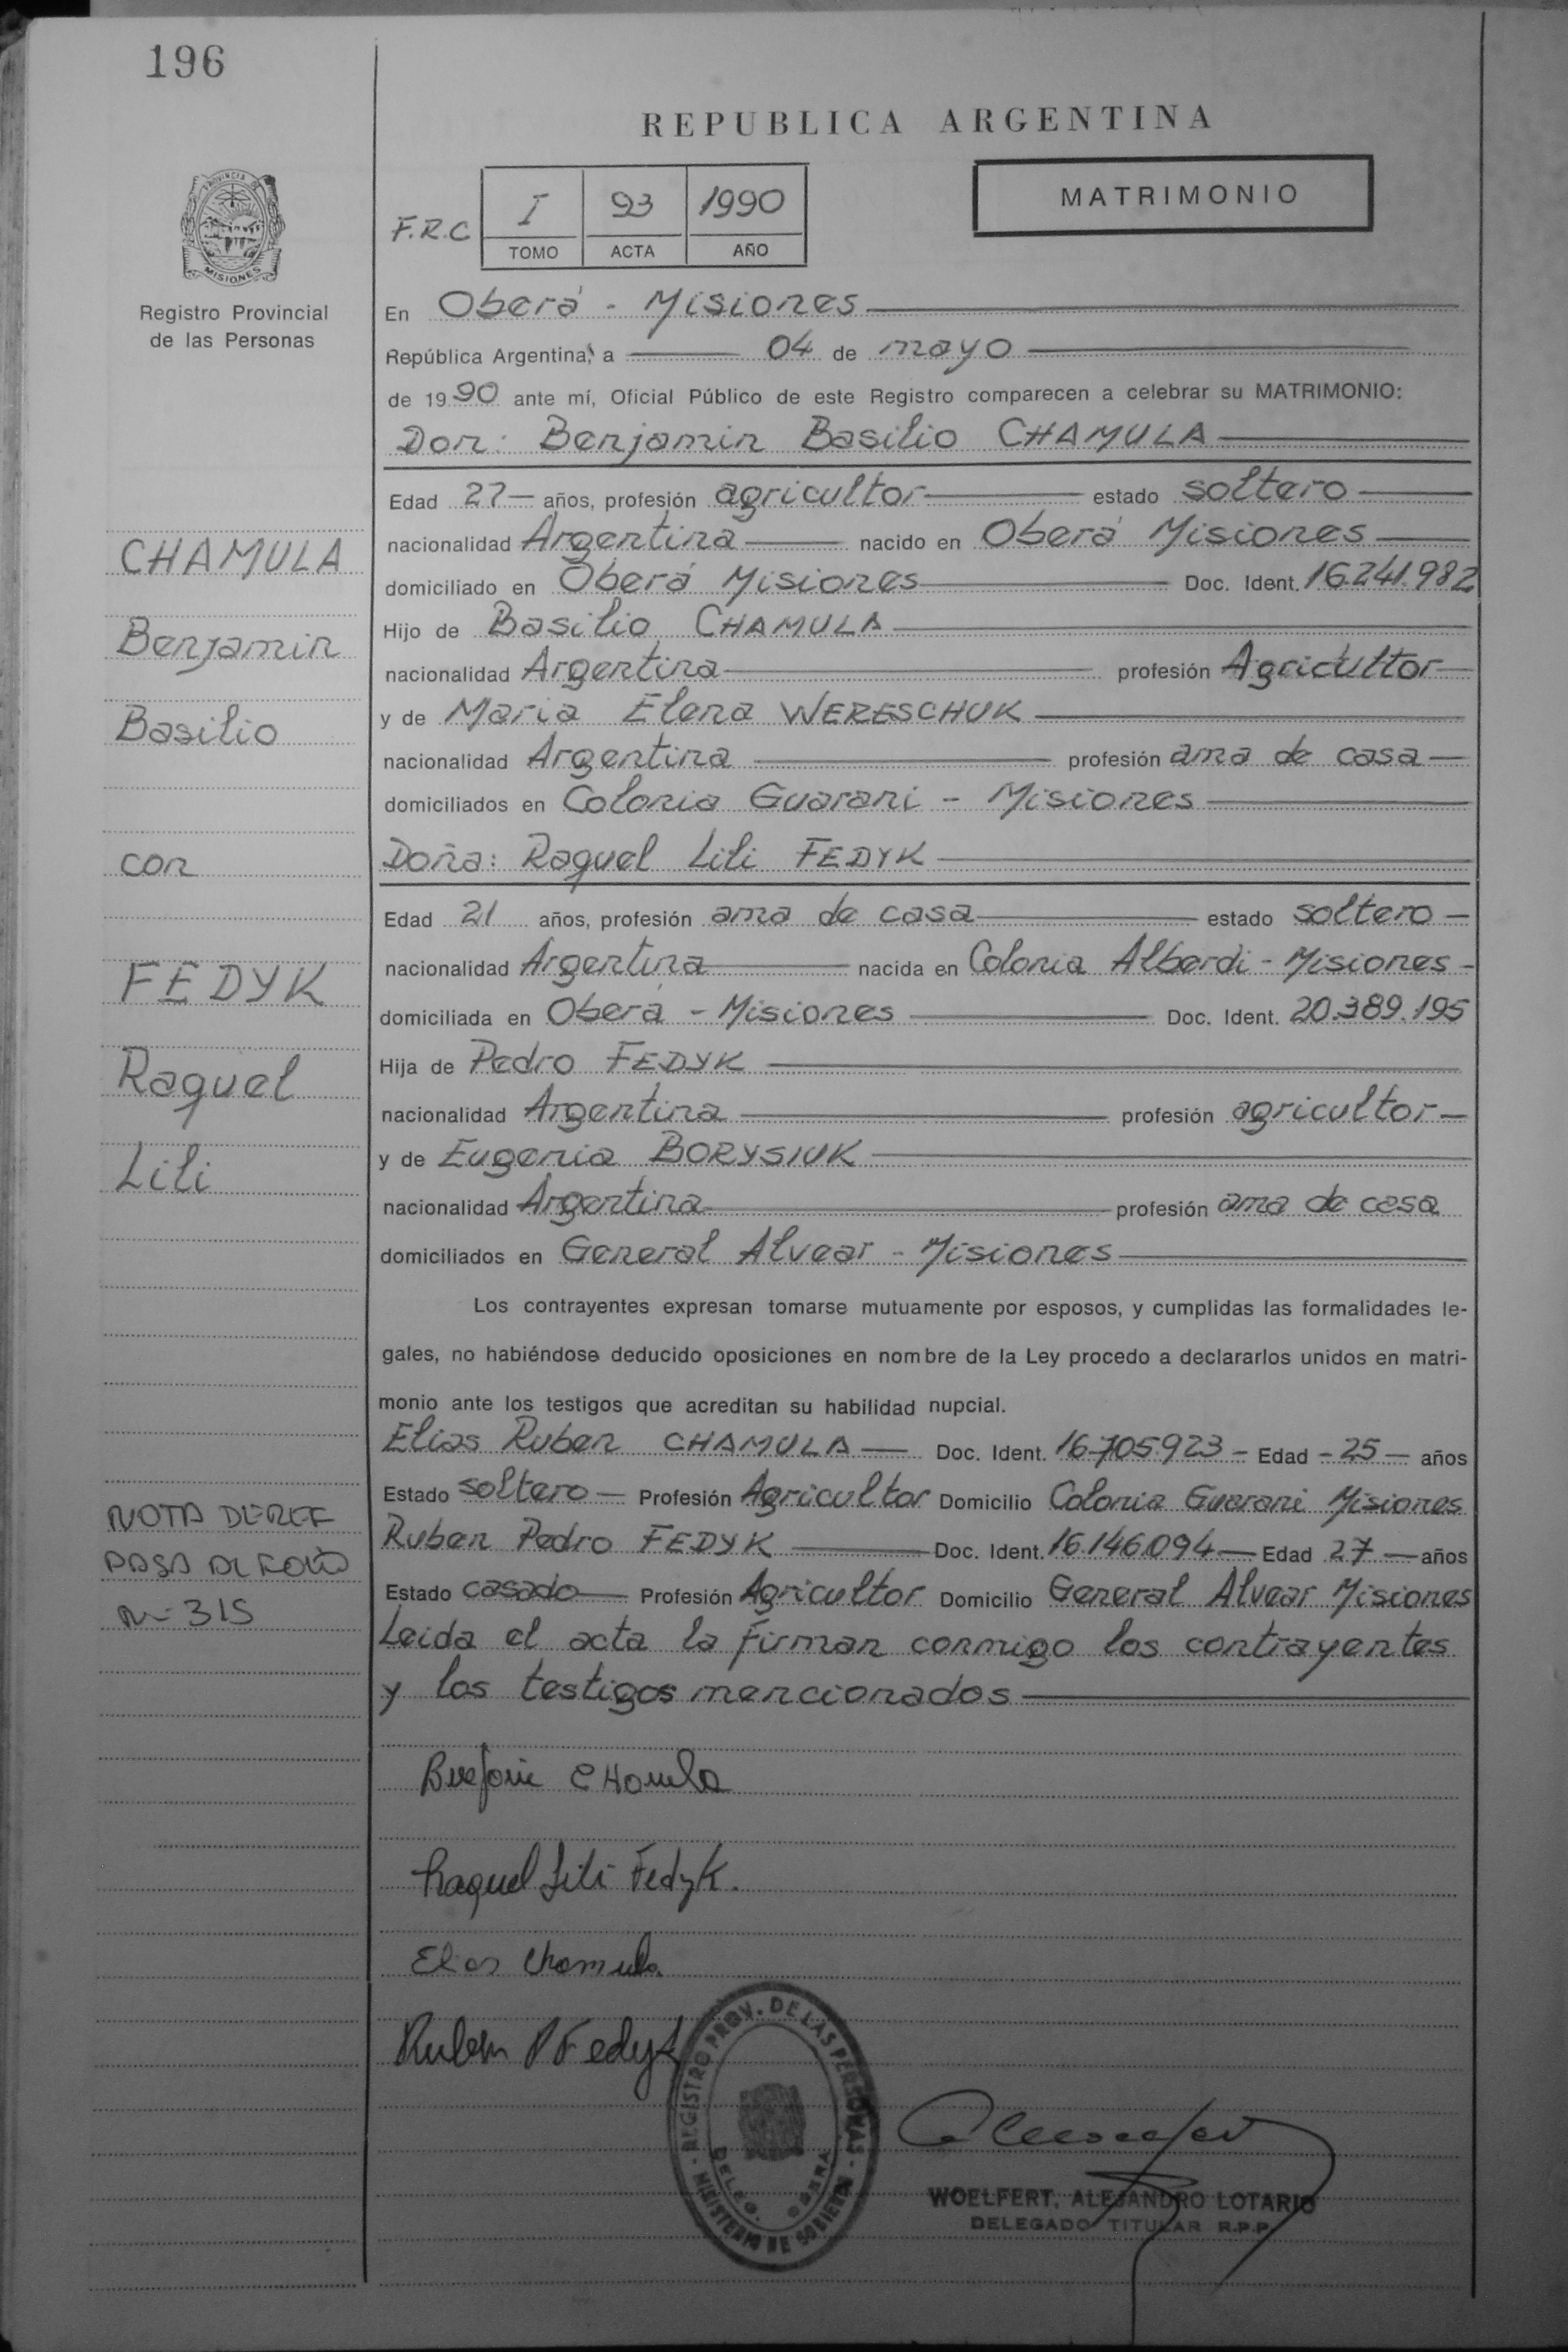 196
REPUBLICA ARGENTINA
PROVINCIA DE
MISIONES
Registro Provincial
de las Personas
F.R.C
I 93 1990
TOMO ACTA AÑO
MATRIMONIO
En Oberá - Misiones
República Argentina, a 04 de mayo
de 1990 ante mí, Oficial Público de este Registro comparecen a celebrar su MATRIMONIO:
Don: Benjamin Basilio CHAMULA
Edad 27 años, profesión agricultor estado soltero
nacionalidad Argentina nacido en Oberá Misiones
domiciliado en Oberá Misiones Doc. Ident. 16.241.982
Hijo de Basilio CHAMULA
nacionalidad Argentina profesión Agricultor
y de Maria Elena WERESCHUK
nacionalidad Argentina profesión ama de casa
domiciliados en Colonia Guarani - Misiones
Doña: Raquel Lili FEDYK
Edad 21 años, profesión ama de casa estado soltero
nacionalidad Argentina nacida en Colonia Alberdi - Misiones
domiciliada en Oberá - Misiones Doc. Ident. 20.389.195
Hija de Pedro FEDYK
nacionalidad Argentina profesión agricultor
y de Eugenia BORYSIUK
nacionalidad Argentina profesión ama de casa
domiciliados en General Alvear - Misiones
Los contrayentes expresan tomarse mutuamente por esposos, y cumplidas las formalidades le-
gales, no habiéndose deducido oposiciones en nombre de la Ley procedo a declararlos unidos en matri-
monio ante los testigos que acreditan su habilidad nupcial.
Elias Ruben CHAMULA Doc. Ident. 16.705.923 - Edad - 25 - años
Estado soltero Profesión Agricultor Domicilio Colonia Guarani Misiones
Ruben Pedro FEDYK Doc. Ident. 16.146.094 Edad 27 años
Estado casado Profesión Agricultor Domicilio General Alvear Misiones
Leida el acta la firman conmigo los contrayentes
y los testigos mencionados
CHAMULA
Benjamin
Basilio
con
FEDYK
Raquel
Lili
NOTA DE REF
PASA AL FOLIO
Nº 315
Chamula
Raquel Lili Fedyk.
Elias Chamula
Ruben P Fedyk
REGISTRO PROV. DE LAS PERSONAS
MINISTERIO DE GOBIERNO
DELEG. OBERA
WOELFERT, ALEJANDRO LOTARIO
DELEGADO TITULAR R.P.P.